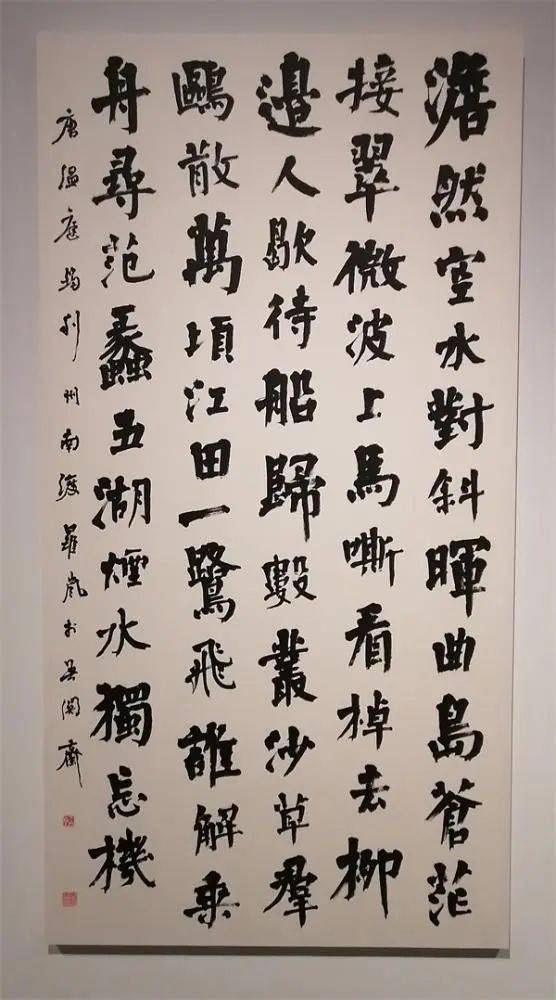 澹然空水對斜暉曲島蒼茫
接翠微波上馬嘶看棹去柳
邊人歇待船歸數叢沙草羣
鷗散萬頃江田一鷺飛誰解乘
舟尋范蠡五湖煙水獨忘機
唐温庭筠利州南渡嵐於齋